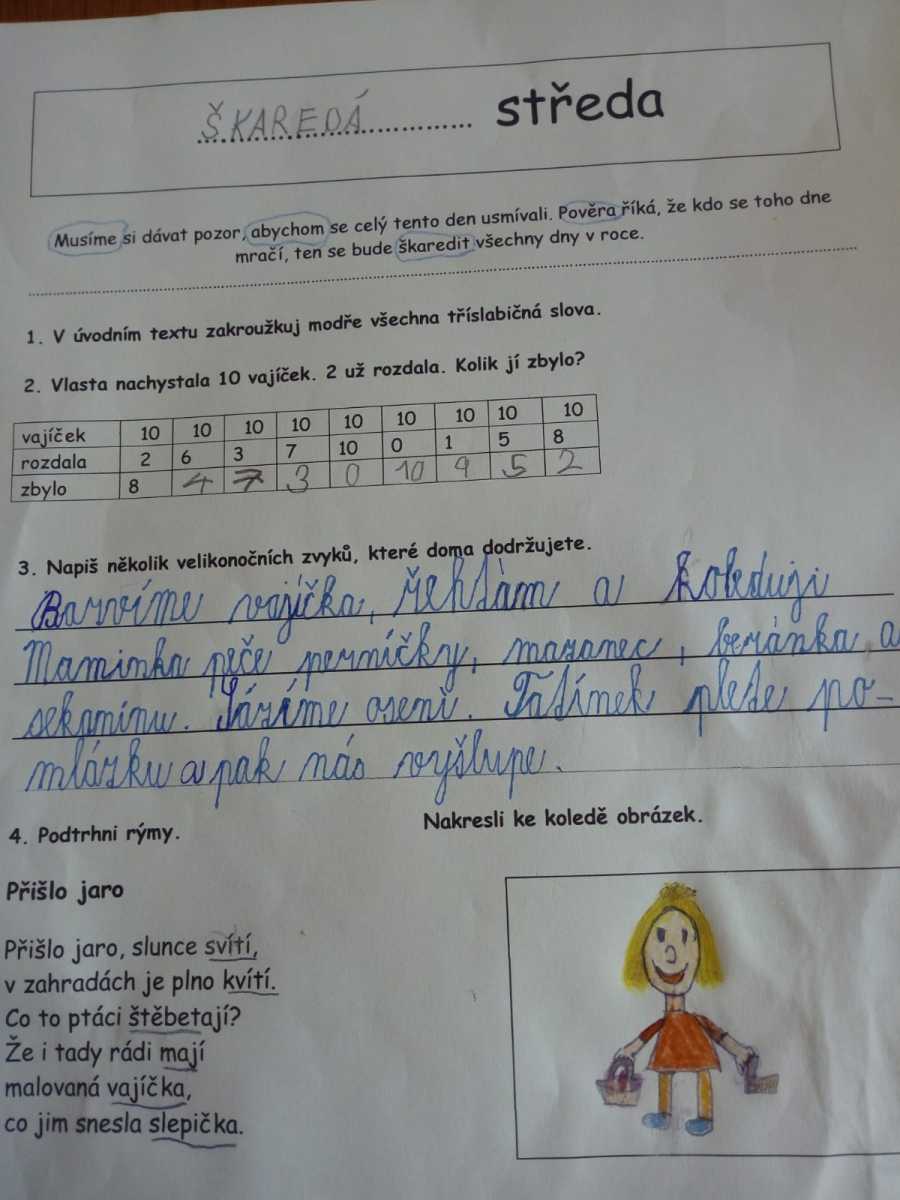 ŠKAREDÁ.............. středa
Musíme si dávat pozor, abychom se celý tento den usmívali. Pověra říká, že kdo se toho dne
mračí, ten se bude škaredit všechny dny v roce.
1. V úvodním textu zakroužkuj modře všechna tříslabičná slova.
2. Vlasta nachystala 10 vajíček. 2 už rozdala. Kolik jí zbylo?
vajíček 10 10 10 10 10 10 10 10 10
rozdala 2 6 3 7 10 0 1 5 8
zbylo 8 4 7 3 0 10 9 5 2
3. Napiš několik velikonočních zvyků, které doma dodržujete.
Barvíme vajíčka, řehtám a koleduji
Maminka peče perníčky, mazanec, beránka a
sekaninu. Sázíme osení. Tatínek plete po-
mlázku a pak nás vyšlupe.
4. Podtrhni rýmy.
Nakresli ke koledě obrázek.
Přišlo jaro
Přišlo jaro, slunce svítí,
v zahradách je plno kvítí.
Co to ptáci štěbetají?
Že i tady rádi mají
malovaná vajíčka,
co jim snesla slepička.